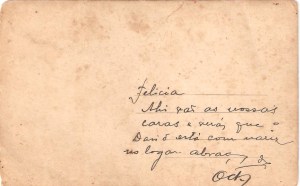 Felicia
Ahi vai as nossas
caras e verás que o
Davi está com nariz
no logar. abraços de